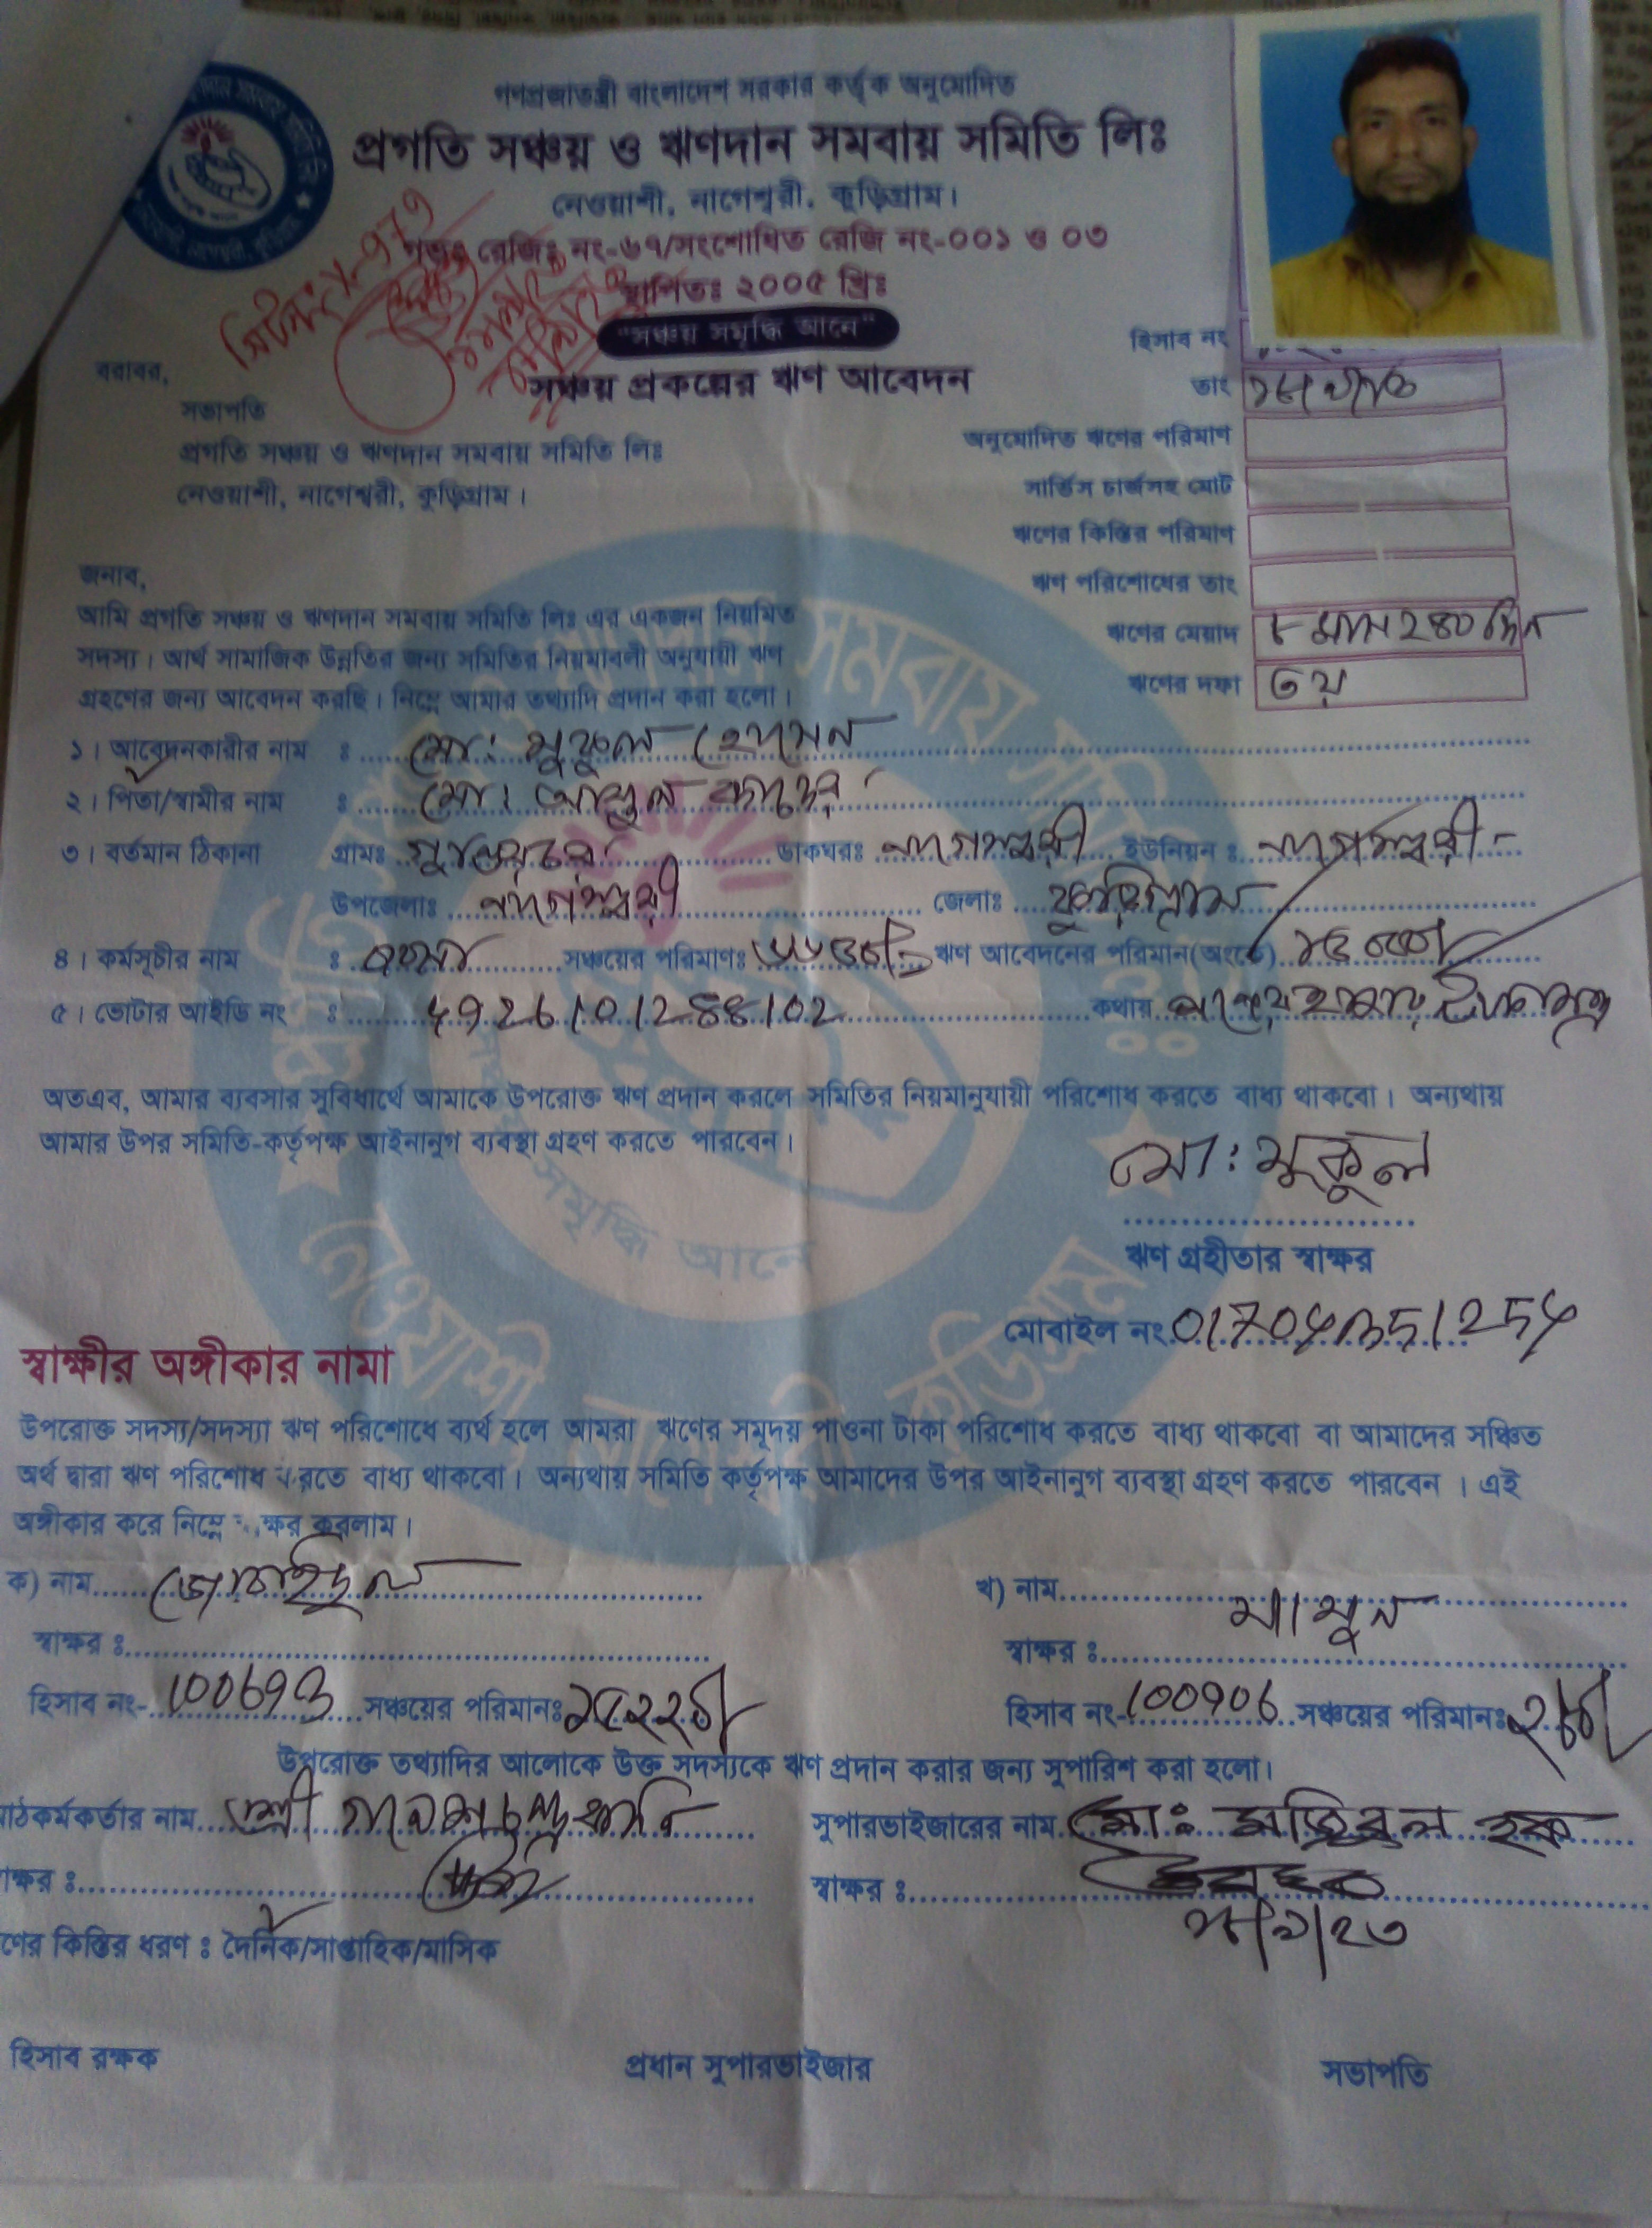 গণপ্রজাতন্ত্রী বাংলাদেশ সরকার কর্তৃক অনুমোদিত
প্রগতি সঞ্চয় ও ঋণদান সমবায় সমিতি লিঃ
নেওয়াশী, নাগেশ্বরী, কুড়িগ্রাম।
গভঃ রেজিঃ নং-৬৭/সংশোধিত রেজি নং-০০১ ও ০৩
স্থাপিতঃ ২০০৫ খ্রিঃ
"সঞ্চয় সমৃদ্ধি আনে"
সঞ্চয় প্রকল্পের ঋণ আবেদন
হিসাব নং
তাং
অনুমোদিত ঋণের পরিমাণ
সার্ভিস চার্জসহ মোট
ঋণের কিস্তির পরিমাণ
ঋণ পরিশোধের তাং
ঋণের মেয়াদ ৮ মাস ২৪০ দিন
ঋণের দফা ৩য়
বরাবর,
সভাপতি
প্রগতি সঞ্চয় ও ঋণদান সমবায় সমিতি লিঃ
নেওয়াশী, নাগেশ্বরী, কুড়িগ্রাম।
জনাব,
আমি প্রগতি সঞ্চয় ও ঋণদান সমবায় সমিতি লিঃ এর একজন নিয়মিত
সদস্য। আর্থ সামাজিক উন্নতির জন্য সমিতির নিয়মাবলী অনুযায়ী ঋণ
গ্রহণের জন্য আবেদন করছি। নিম্নে আমার তথ্যাদি প্রদান করা হলো।
১। আবেদনকারীর নাম : মো: মুকুল হোসেন
২। পিতা/স্বামীর নাম : মো: আব্দুল কাদের
৩। বর্তমান ঠিকানা গ্রামঃ ডাকঘরঃ নাগেশ্বরী ইউনিয়ন : নাগেশ্বরী
উপজেলাঃ নাগেশ্বরী জেলাঃ কুড়িগ্রাম
৪। কর্মসূচীর নাম : সঞ্চয়ের পরিমাণঃ ঋণ আবেদনের পরিমান(অংকে) ১৫০০০/
৫। ভোটার আইডি নং : কথায় পনের হাজার টাকা মাত্র
অতএব, আমার ব্যবসার সুবিধার্থে আমাকে উপরোক্ত ঋণ প্রদান করলে সমিতির নিয়মানুযায়ী পরিশোধ করতে বাধ্য থাকবো। অন্যথায়
আমার উপর সমিতি-কর্তৃপক্ষ আইনানুগ ব্যবস্থা গ্রহণ করতে পারবেন।
মো: মুকুল
ঋণ গ্রহীতার স্বাক্ষর
মোবাইল নং
স্বাক্ষীর অঙ্গীকার নামা
উপরোক্ত সদস্য/সদস্যা ঋণ পরিশোধে ব্যর্থ হলে আমরা ঋণের সমূদয় পাওনা টাকা পরিশোধ করতে বাধ্য থাকবো বা আমাদের সঞ্চিত
অর্থ দ্বারা ঋণ পরিশোধ করতে বাধ্য থাকবো। অন্যথায় সমিতি কর্তৃপক্ষ আমাদের উপর আইনানুগ ব্যবস্থা গ্রহণ করতে পারবেন । এই
অঙ্গীকার করে নিম্নে স্বাক্ষর করলাম।
ক) নাম
খ) নাম মামুন
স্বাক্ষর :
স্বাক্ষর :
হিসাব নং- সঞ্চয়ের পরিমানঃ
হিসাব নং- 100906 সঞ্চয়ের পরিমানঃ
উপরোক্ত তথ্যাদির আলোকে উক্ত সদস্যকে ঋণ প্রদান করার জন্য সুপারিশ করা হলো।
মাঠকর্মকর্তার নাম শ্রী
সুপারভাইজারের নাম মো: মজিবুল হক
স্বাক্ষর :
স্বাক্ষর :
ঋণের কিস্তির ধরণ : দৈনিক/সাপ্তাহিক/মাসিক
হিসাব রক্ষক
প্রধান সুপারভাইজার
সভাপতি